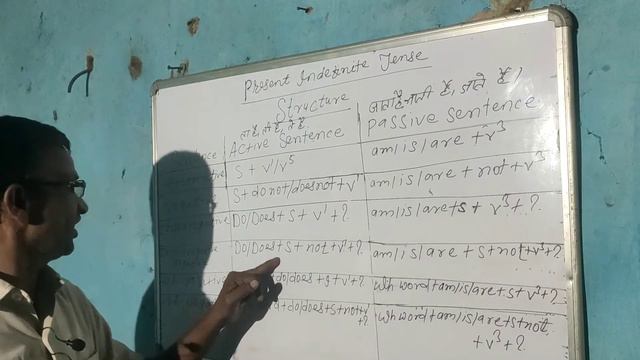 Present Indefinite Tense
Structure
ता है, ती है, ते है. जाता है, जाती है, जाते हैं।
Active Sentence Passive Sentence
S + V¹/V⁵ am/is/are + V³
S + do not/does not + V¹ am/is/are + not + V³
Do/Does + S + V¹ + ? am/is/are + S + V³ + ?
Do/Does + S + not + V¹ + ? am/is/are + S + not + V³ + ?
do/does + S + V¹ + ? Wh word + am/is/are + S + V³ + ?
+ do/does + S + not + V¹ Wh word + am/is/are + S + not
+ ? + V³ + ?